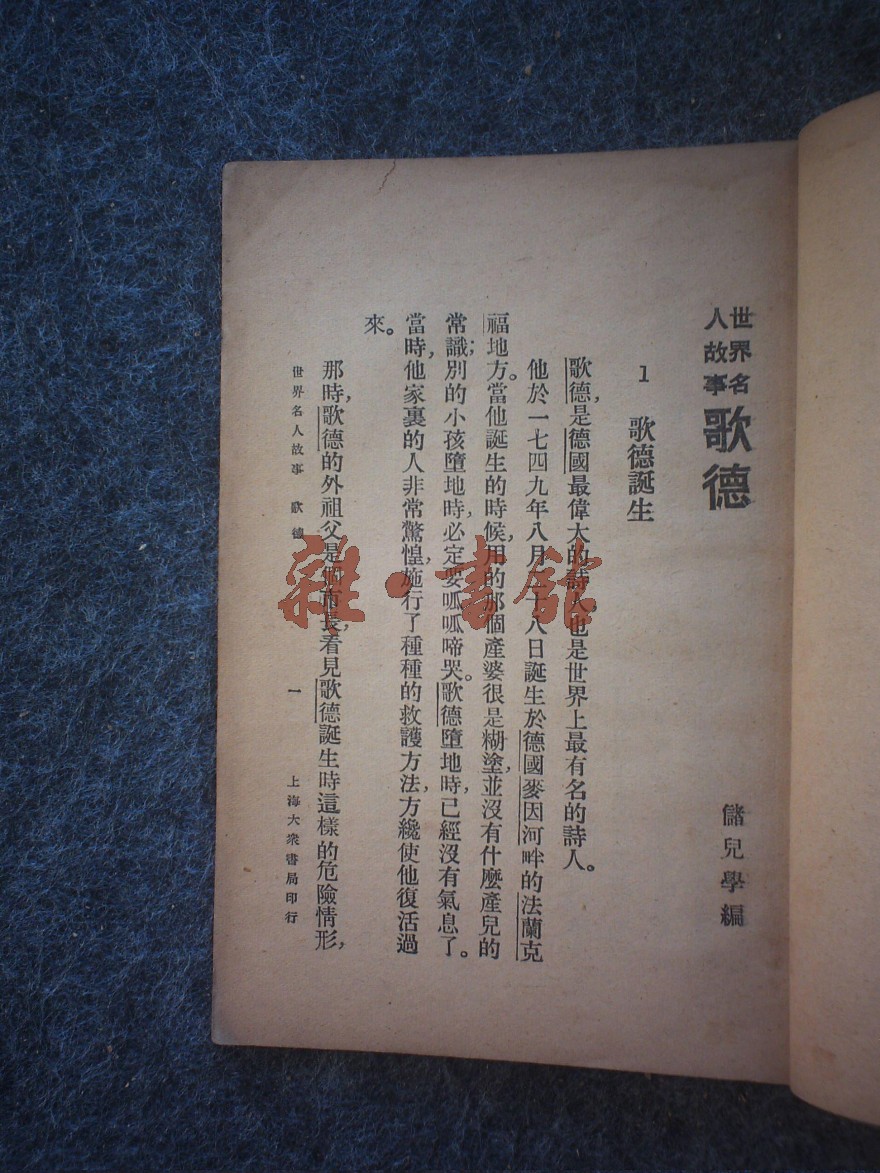 世界名
人故事
歌德
儲兒學編
1 歌德誕生
歌德，是德國最偉大的詩人。也是世界上最有名的詩人。
他於一七四九年八月二十八日誕生於德國麥因河畔的法蘭克
福地方。當他誕生的時候，用的那個產婆很是糊塗，並沒有什麼產兒的
常識；別的小孩墮地時，必定要呱呱啼哭。歌德墮地時，已經沒有氣息了。
當時，他家裏的人非常驚惶，施行了種種的救護方法，方纔使他復活過
來。
那時，歌德的外祖父是個市長，看見歌德誕生時這樣的危險情形，
世界名人故事 歌德 一 上海大衆書局印行
雜·書館